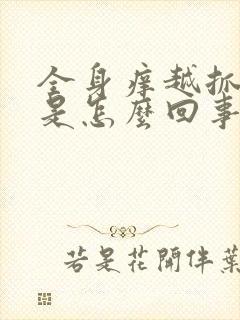 全身痒越抓
是怎麼回事
若是花開伴葉